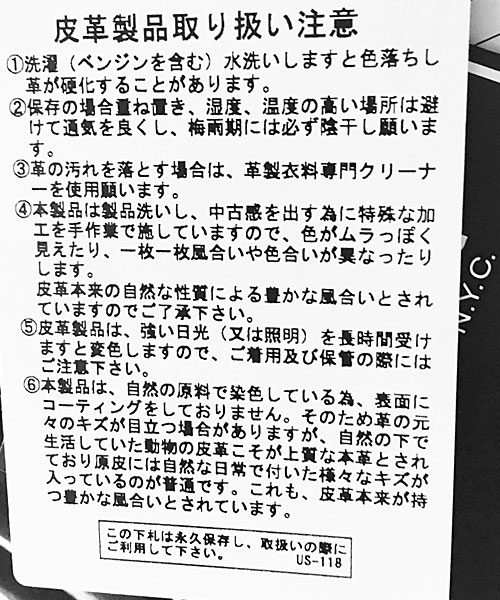 皮革製品取り扱い注意
①洗濯（ベンジンを含む）水洗いしますと色落ちし
革が硬化することがあります。
②保存の場合重ね置き、湿度、温度の高い場所は避
けて通気を良くし、梅雨期には必ず陰干し願いま
す。
③革の汚れを落とす場合は、革製衣料専門クリーナ
ーを使用願います。
④本製品は製品洗いし、中古感を出す為に特殊な加
工を手作業で施していますので、色がムラっぽく
見えたり、一枚一枚風合いや色合いが異なったり
します。
皮革本来の自然な性質による豊かな風合いとされ
ていますのでご了承下さい。
⑤皮革製品は、強い日光（又は照明）を長時間受け
ますと変色しますので、ご着用及び保管の際には
ご注意下さい。
⑥本製品は、自然の原料で染色している為、表面に
コーティングをしておりません。そのため革の元
々のキズが目立つ場合がありますが、自然の下で
生活していた動物の皮革こそが上質な本革とされ
ており原皮には自然な日常で付いた様々なキズが
入っているのが普通です。これも、皮革本来が持
つ豊かな風合いとされています。
この下札は永久保存し、取扱いの際に
ご利用して下さい。 US-118
N.Y.C.